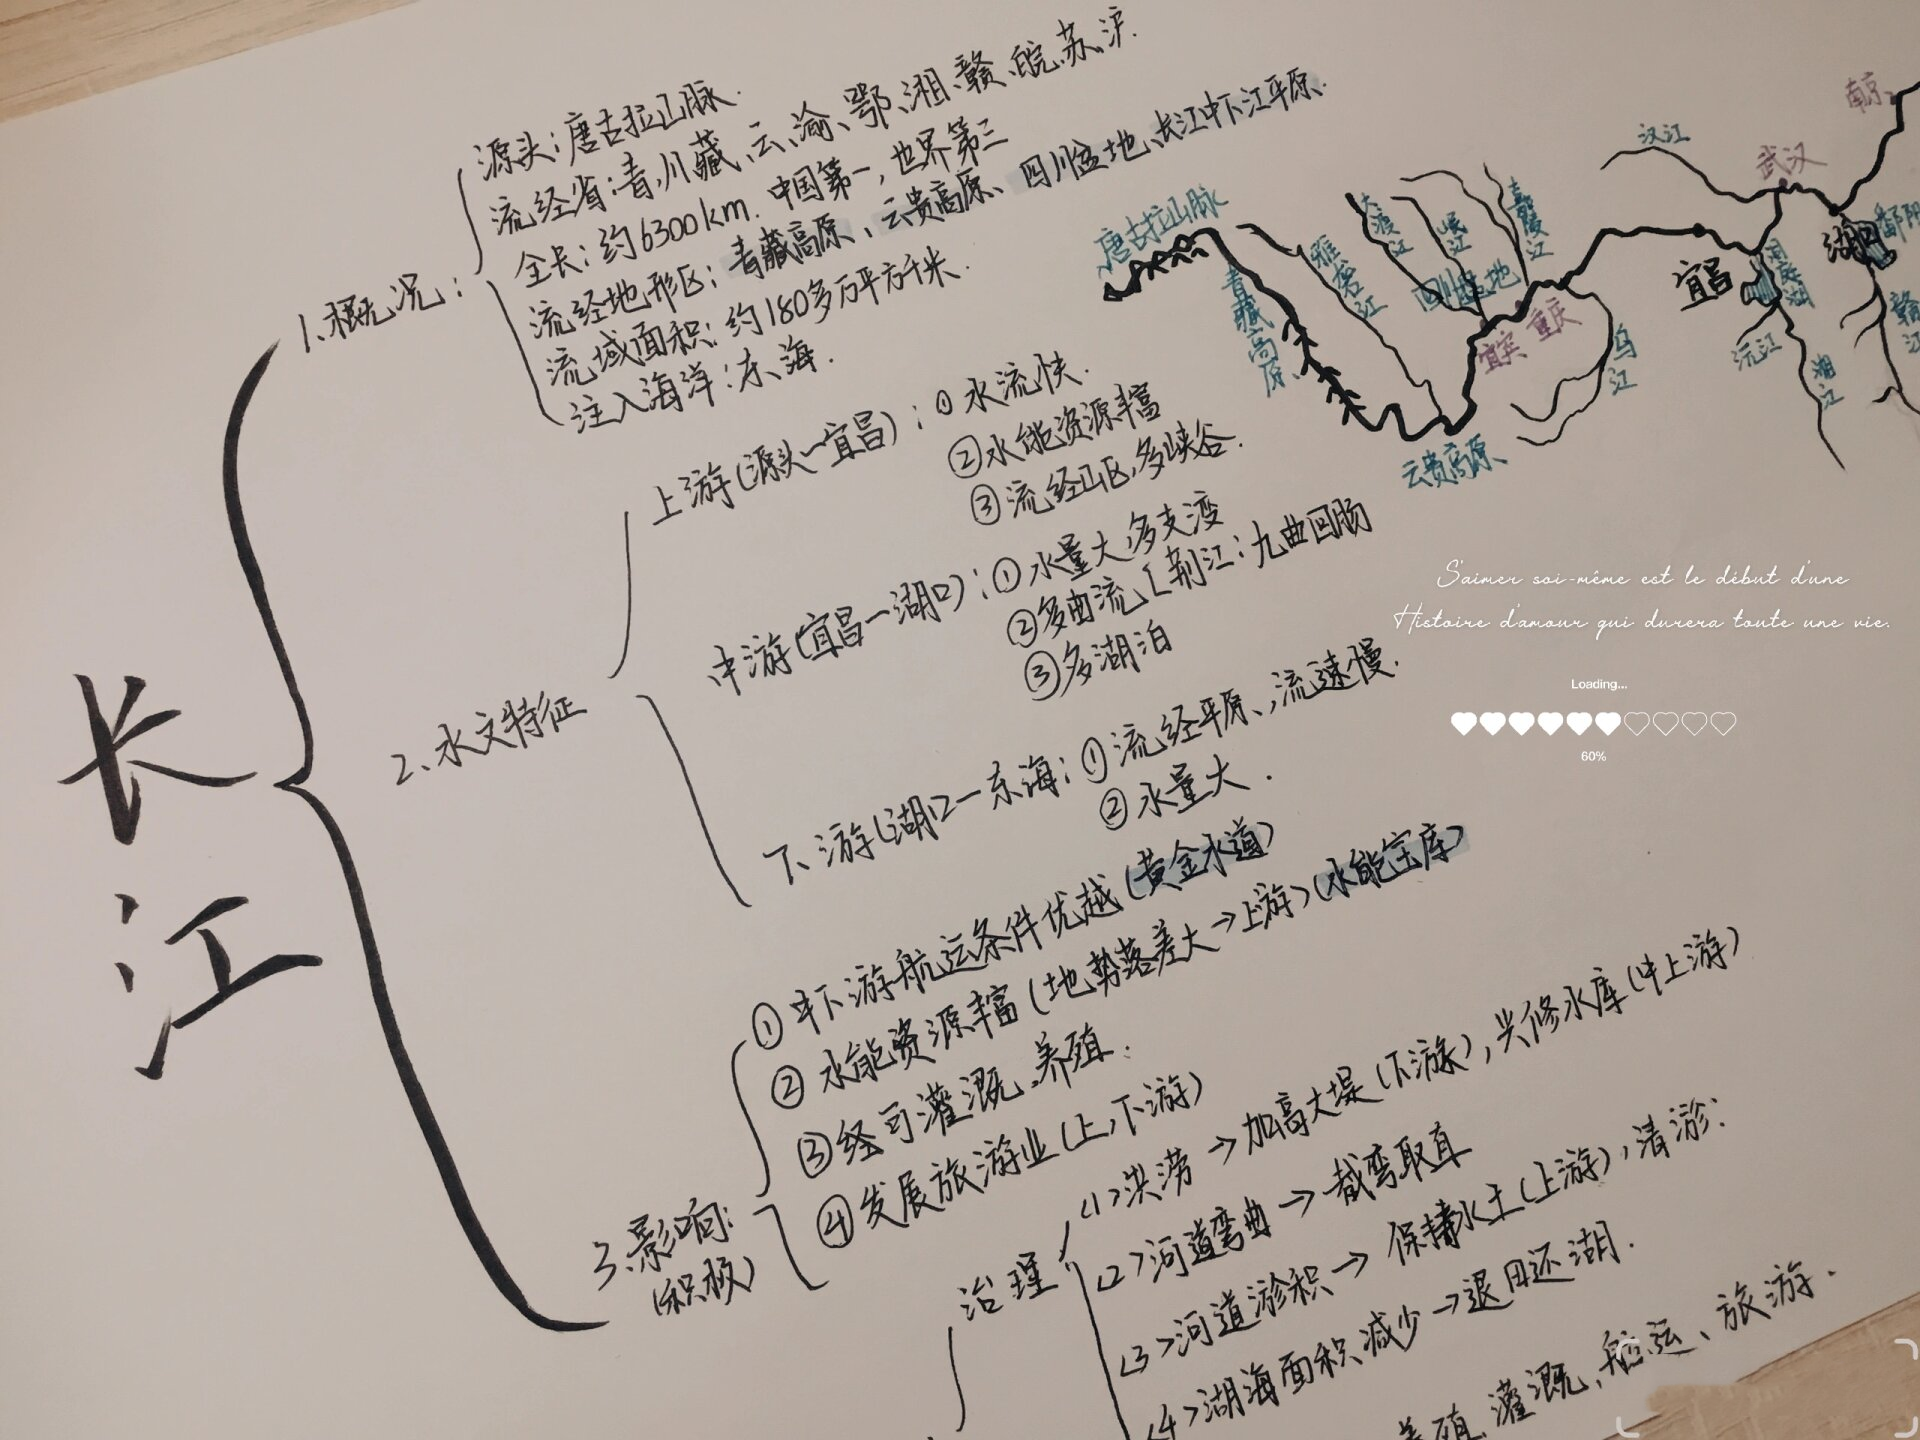 长江
1.概况:
源头:唐古拉山脉.
流经省:青、川、藏、云、渝、鄂、湘、赣、皖、苏、沪.
全长:约6300km.中国第一,世界第三
流经地形区:青藏高原、云贵高原、四川盆地、长江中下江平原.
流域面积:约180多万平方千米.
注入海洋:东海.
2、水文特征
上游(源头—宜昌):①水流快.
②水能资源丰富
③流经山区,多峡谷.
中游(宜昌—湖口):①水量大,多支
②多曲流,[荆江:九曲回肠
③多湖泊
下游(湖口—东海:①流经平原,流速慢.
②水量大.
3.影响:
(积极)
①中下游航运条件优越(黄金水道)
②水能资源丰富(地势落差大→上游)(水能宝库)
③经可灌溉、养殖.
④发展旅游业(上,下游)
治理
<1>洪涝→加高大堤(下游),兴修水库(中上游)
<2>河道弯曲→截弯取直
<3>河道淤积→保持水土(上游),清淤:
<4>湖海面积减少→退田还湖.
养殖、灌溉、航运、旅游.
唐古拉山脉
青藏高原
雅砻江
大渡江
岷江
嘉陵江
四川盆地
宜宾
重庆
乌江
云贵高原
汉江
武汉
南京
宜昌
洞庭湖
湖口
鄱阳
沅江
湘江
赣江
S'aimer soi-même est le début d'une
Histoire d'amour qui durera toute une vie.
Loading...
60%